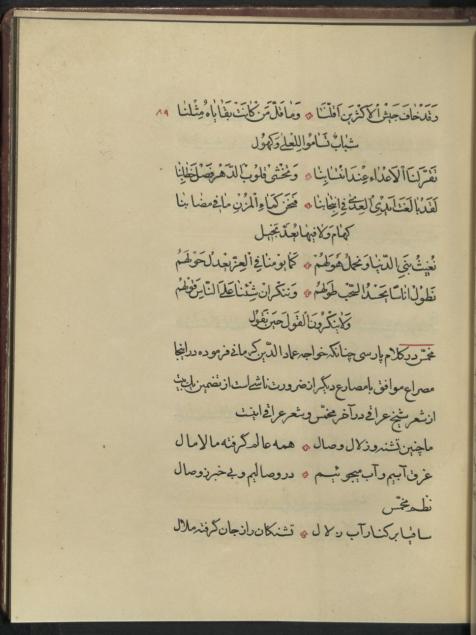 وقد خاف جيش الاكثرين اقلنا ⁘ وما قل من كانت بقاياه مثلنا ٨٩
شباب تساموا للعلى وكهول
تقر لنا الاعداء عند انتسابنا ⁘ وتخشى قلوب الدهر فصل خطابنا
لقد بالغت ايدى العدى فى انتخابنا ⁘ فنحن كماء المزن ما فى نصابنا
كهام ولا فينا يعد بخيل
نغيث بنى الدنيا ونحمل هولهم ⁘ كما يومنا فى العز يعدل حولهم
نطول اناسا تحسد السحب طولهم ⁘ وننكر ان شئنا على الناس قولهم
ولا ينكرون القول حين نقول
مخمس در كلام پارسى چنانكه خواجه عماد الدين كرمانى فرموده در اينجا
مصراع موافق با مصارع ديگر از ضرورت ناشى است از تضمين بك بيت
از شعر شيخ عراقى در آخر مخمس وشعر عراقى اينست
ما چنين تشنه و زلال وصال ⁘ همه عالم گرفته مالامال
غرق آبيم و آب ميجوئيم ⁘ در وصاليم و بى خبر ز وصال
نظم مخمس
ساقيا بر كنار آب زلال ⁘ تشنگان را ز جان گرفته ملال